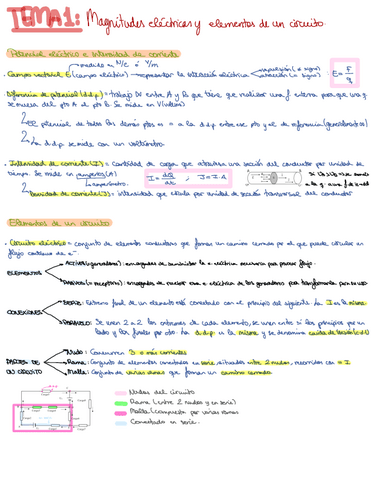 TEMA 1: Magnitudes eléctricas y elementos de un circuito.
Potencial eléctrico e intensidad de corriente
medido = N/C o V/m
Campo vectorial E (campo eléctrico) representar la interacción eléctrica
repulsión (= signo)
atracción (≠ signo)
E = F/q
Diferencia de potencial (d.d.p.) = trabajo W entre A y B que tiene que realizar una f. externa para que una q
se mueva del pto A al pto B. Se mide en V (voltios)
El potencial de todos los demás ptos es = a la d.d.p entre ese pto y el de referencia
La d.d.p se mide con un voltímetro
Intensidad de corriente (I) = Cantidad de carga que atraviesa una sección del conductor por unidad de
tiempo. Se mide en amperios (A)
amperímetro
I = dQ/dt ; J = I · A
Densidad de corriente (J): intensidad que circula por unidad de sección transversal del conductor
Elementos de un circuito
Circuito eléctrico = conjunto de elementos conductores que forman un camino cerrado por el que puede circular un
flujo continuo de e-
ELEMENTOS
ACTIVOS (generadores): encargados de suministrar la e. eléctrica necesaria para producir flujo.
PASIVOS (= receptores): encargados de recibir esa e. eléctrica de los generadores para transformarla
CONEXIONES
SERIE: Extremo final de un elemento está conectado con el principio del siguiente. La I es la misma
PARALELO: Se unen 2 a 2 los extremos de cada elemento, se unen entre sí los principios por un
lado y los finales por otro. La d.d.p. es la misma y se denomina caída de tensión
PARTES DE
UN CIRCUITO
Nudo: Concurren 3 o más corrientes
Rama: Conjunto de elementos conectados en serie situados entre 2 nudos, recorridos con = I
Malla: Conjunto de varias ramas que forman un camino cerrado.
Nudos del circuito
Rama (entre 2 nudos y en serie)
Malla (compuesta por varias ramas
Conectado en serie.